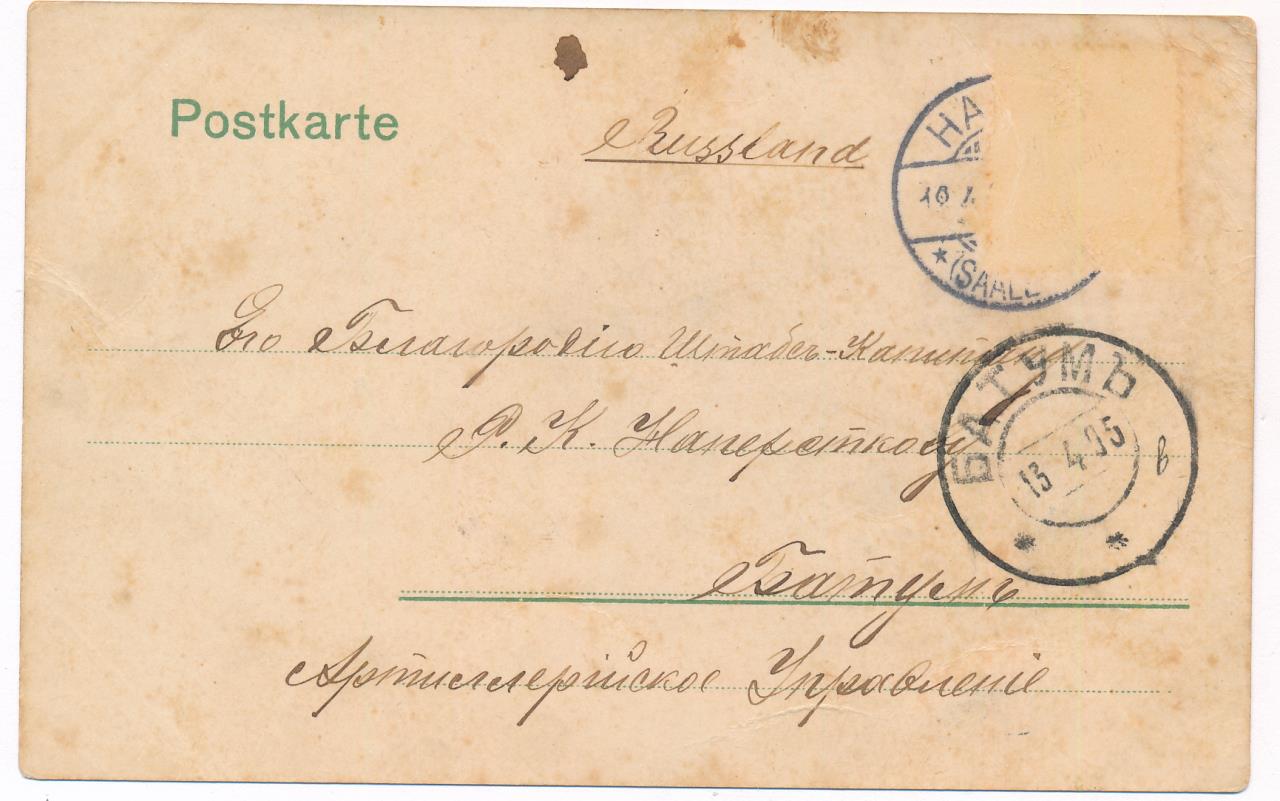 Postkarte
Russland
HA
16.4
* (SAALE
Его Благородiю Штабсъ-Капитану
Р. К. Наперсткову
БАТУМЪ
13 4 05
в
* *
Батумъ
Артиллерiйское Управленiе